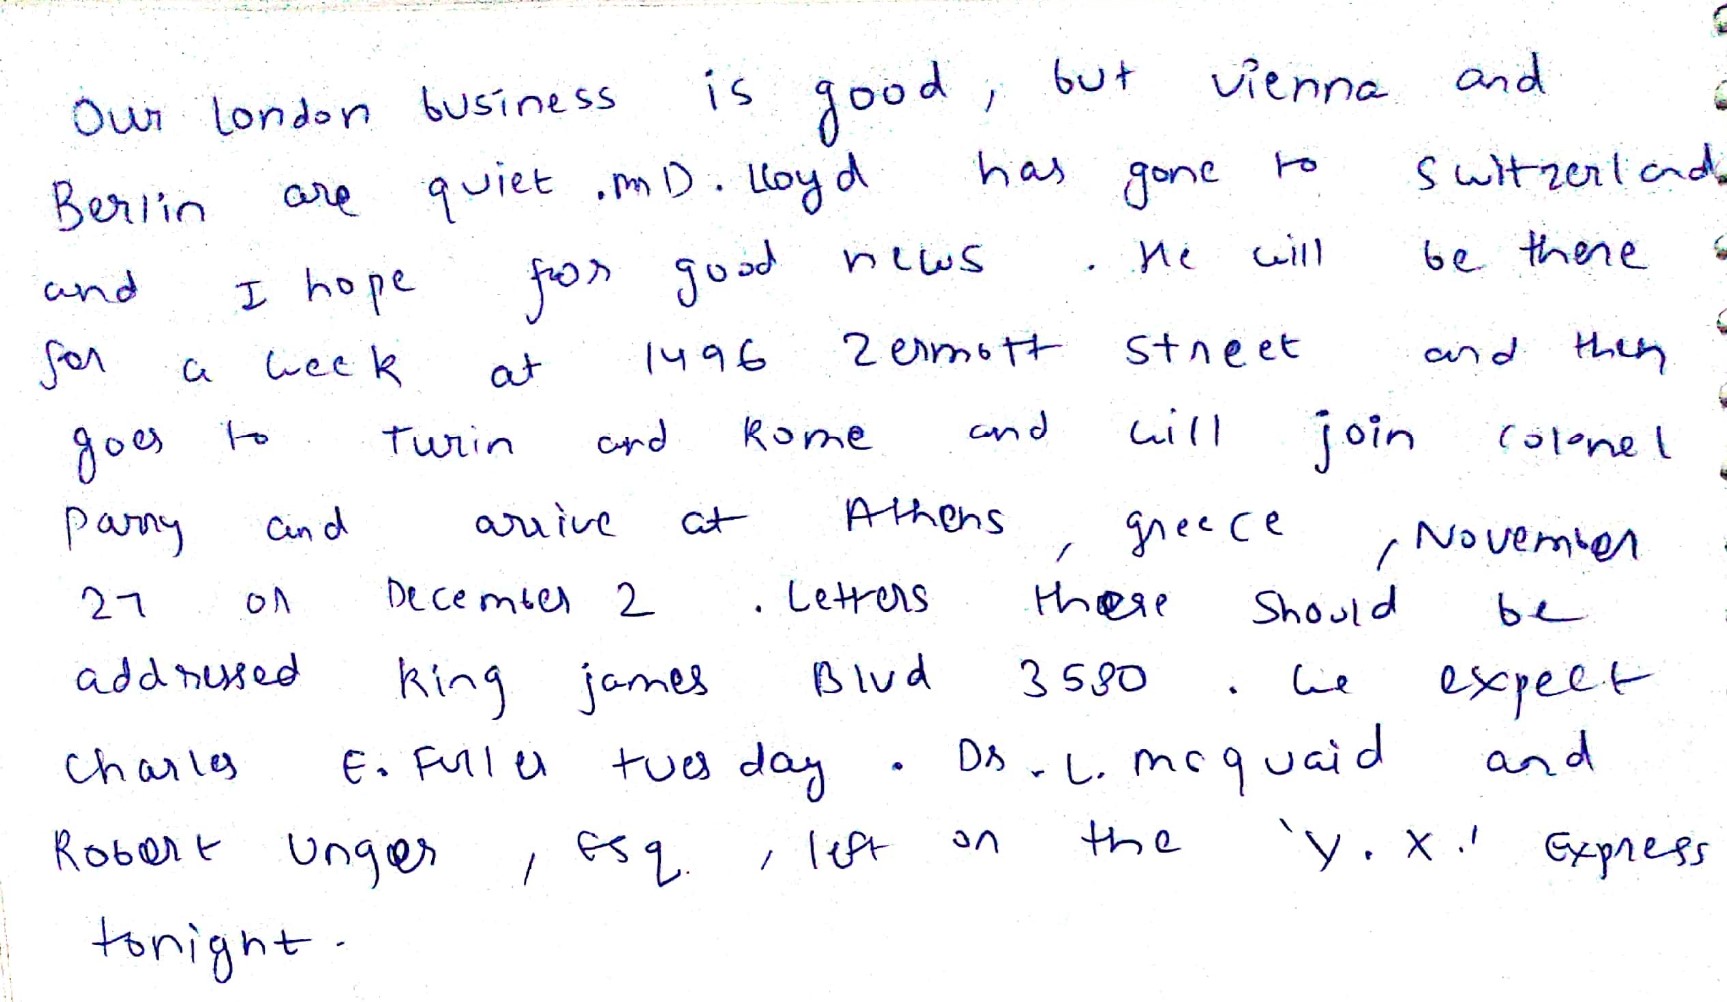 Our london business is good, but vienna and
Berlin are quiet. mD. lloyd has gone to switzerland
and I hope for good news. He will be there
for a week at 1496 Zermott street and then
goes to Turin and Rome and will join colonel
parry and arrive at Athens, greece, November
27 or December 2. Letters there should be
addressed king james Blvd 3580. we expect
charles E. Fuller tuesday. Dr. L. mcquaid and
Robert Unger, Esq., left on the 'Y. X.' Express
tonight.